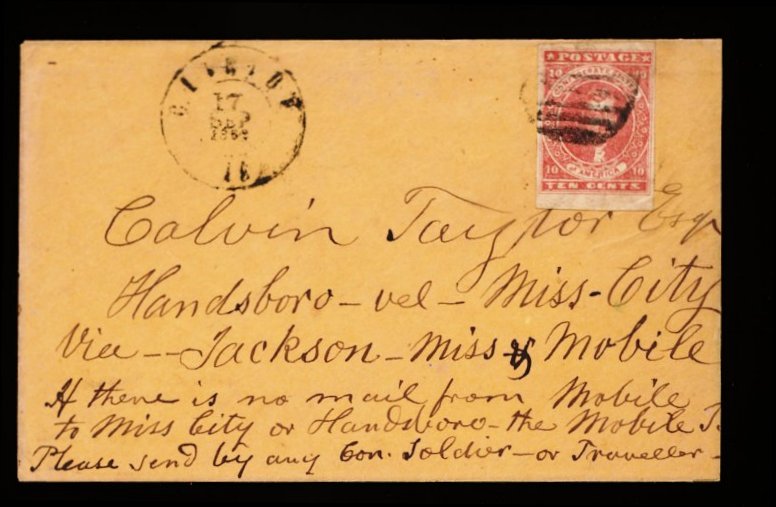 17
SEP
POSTAGE
10 10
10 10
AMERICA
TEN CENTS
Calvin Taylor Esqr
Handsboro - vel - Miss-City
Via -- Jackson - Miss & Mobile
If there is no mail from Mobile
to Miss City or Handsboro - the Mobile
Please send by any Con. Soldier - or Traveller -